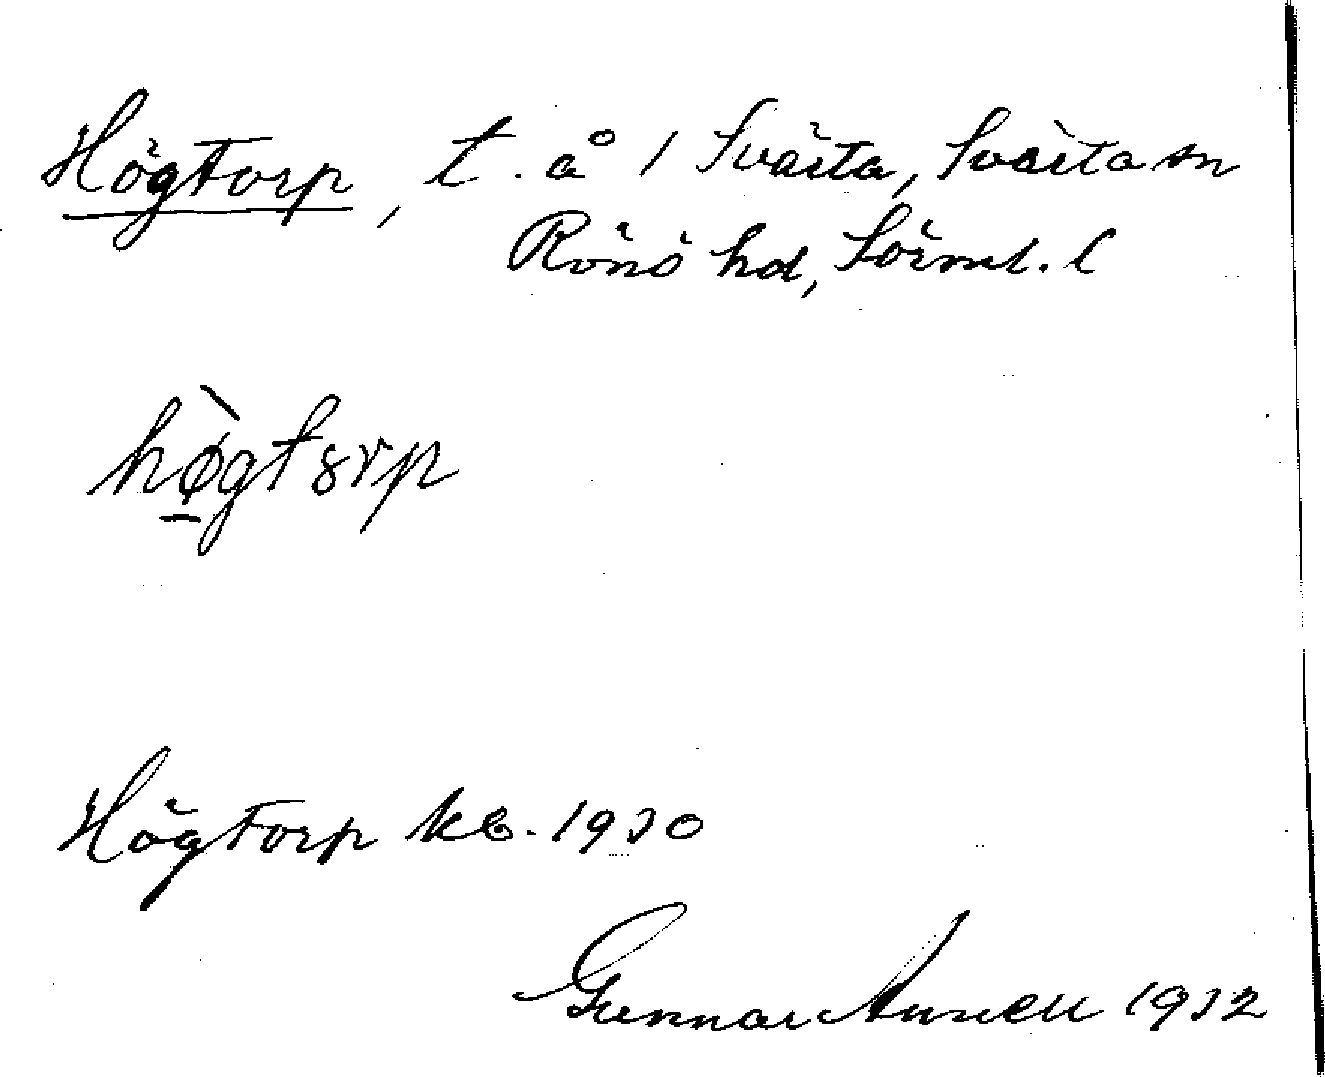 Högtorp, t. å 1 Svärta, Svärta sn
Rönö hd, Sörml. l
hø̀gtȣrp
Högtorp kb. 1930
Gunnar 1932